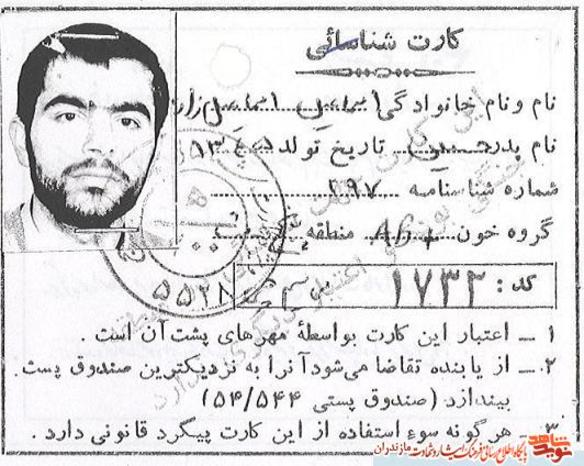 کارت شناسائی
نام و نام خانوادگی اسماعیل اسماعیل زاده
نام پدر حسین تاریخ تولد ۱۳۴۵
شماره شناسنامه ۱۹۷
گروه خون AB+ منطقه
کد: ۱۷۳۲
۵۵۲۸
۱ ـ اعتبار این کارت بواسطهٔ مهرهای پشت آن است
۲ـ از یابنده تقاضا می‌شود آنرا به نزدیکترین صندوق پست
بیندازد (صندوق پستی ۵۴/۵۴۴)
۳ـ هرگونه سوء استفاده از این کارت پیگرد قانونی دارد .
نوید شاهد
پایگاه اطلاع رسانی فرهنگ ایثار و شهادت مازندران